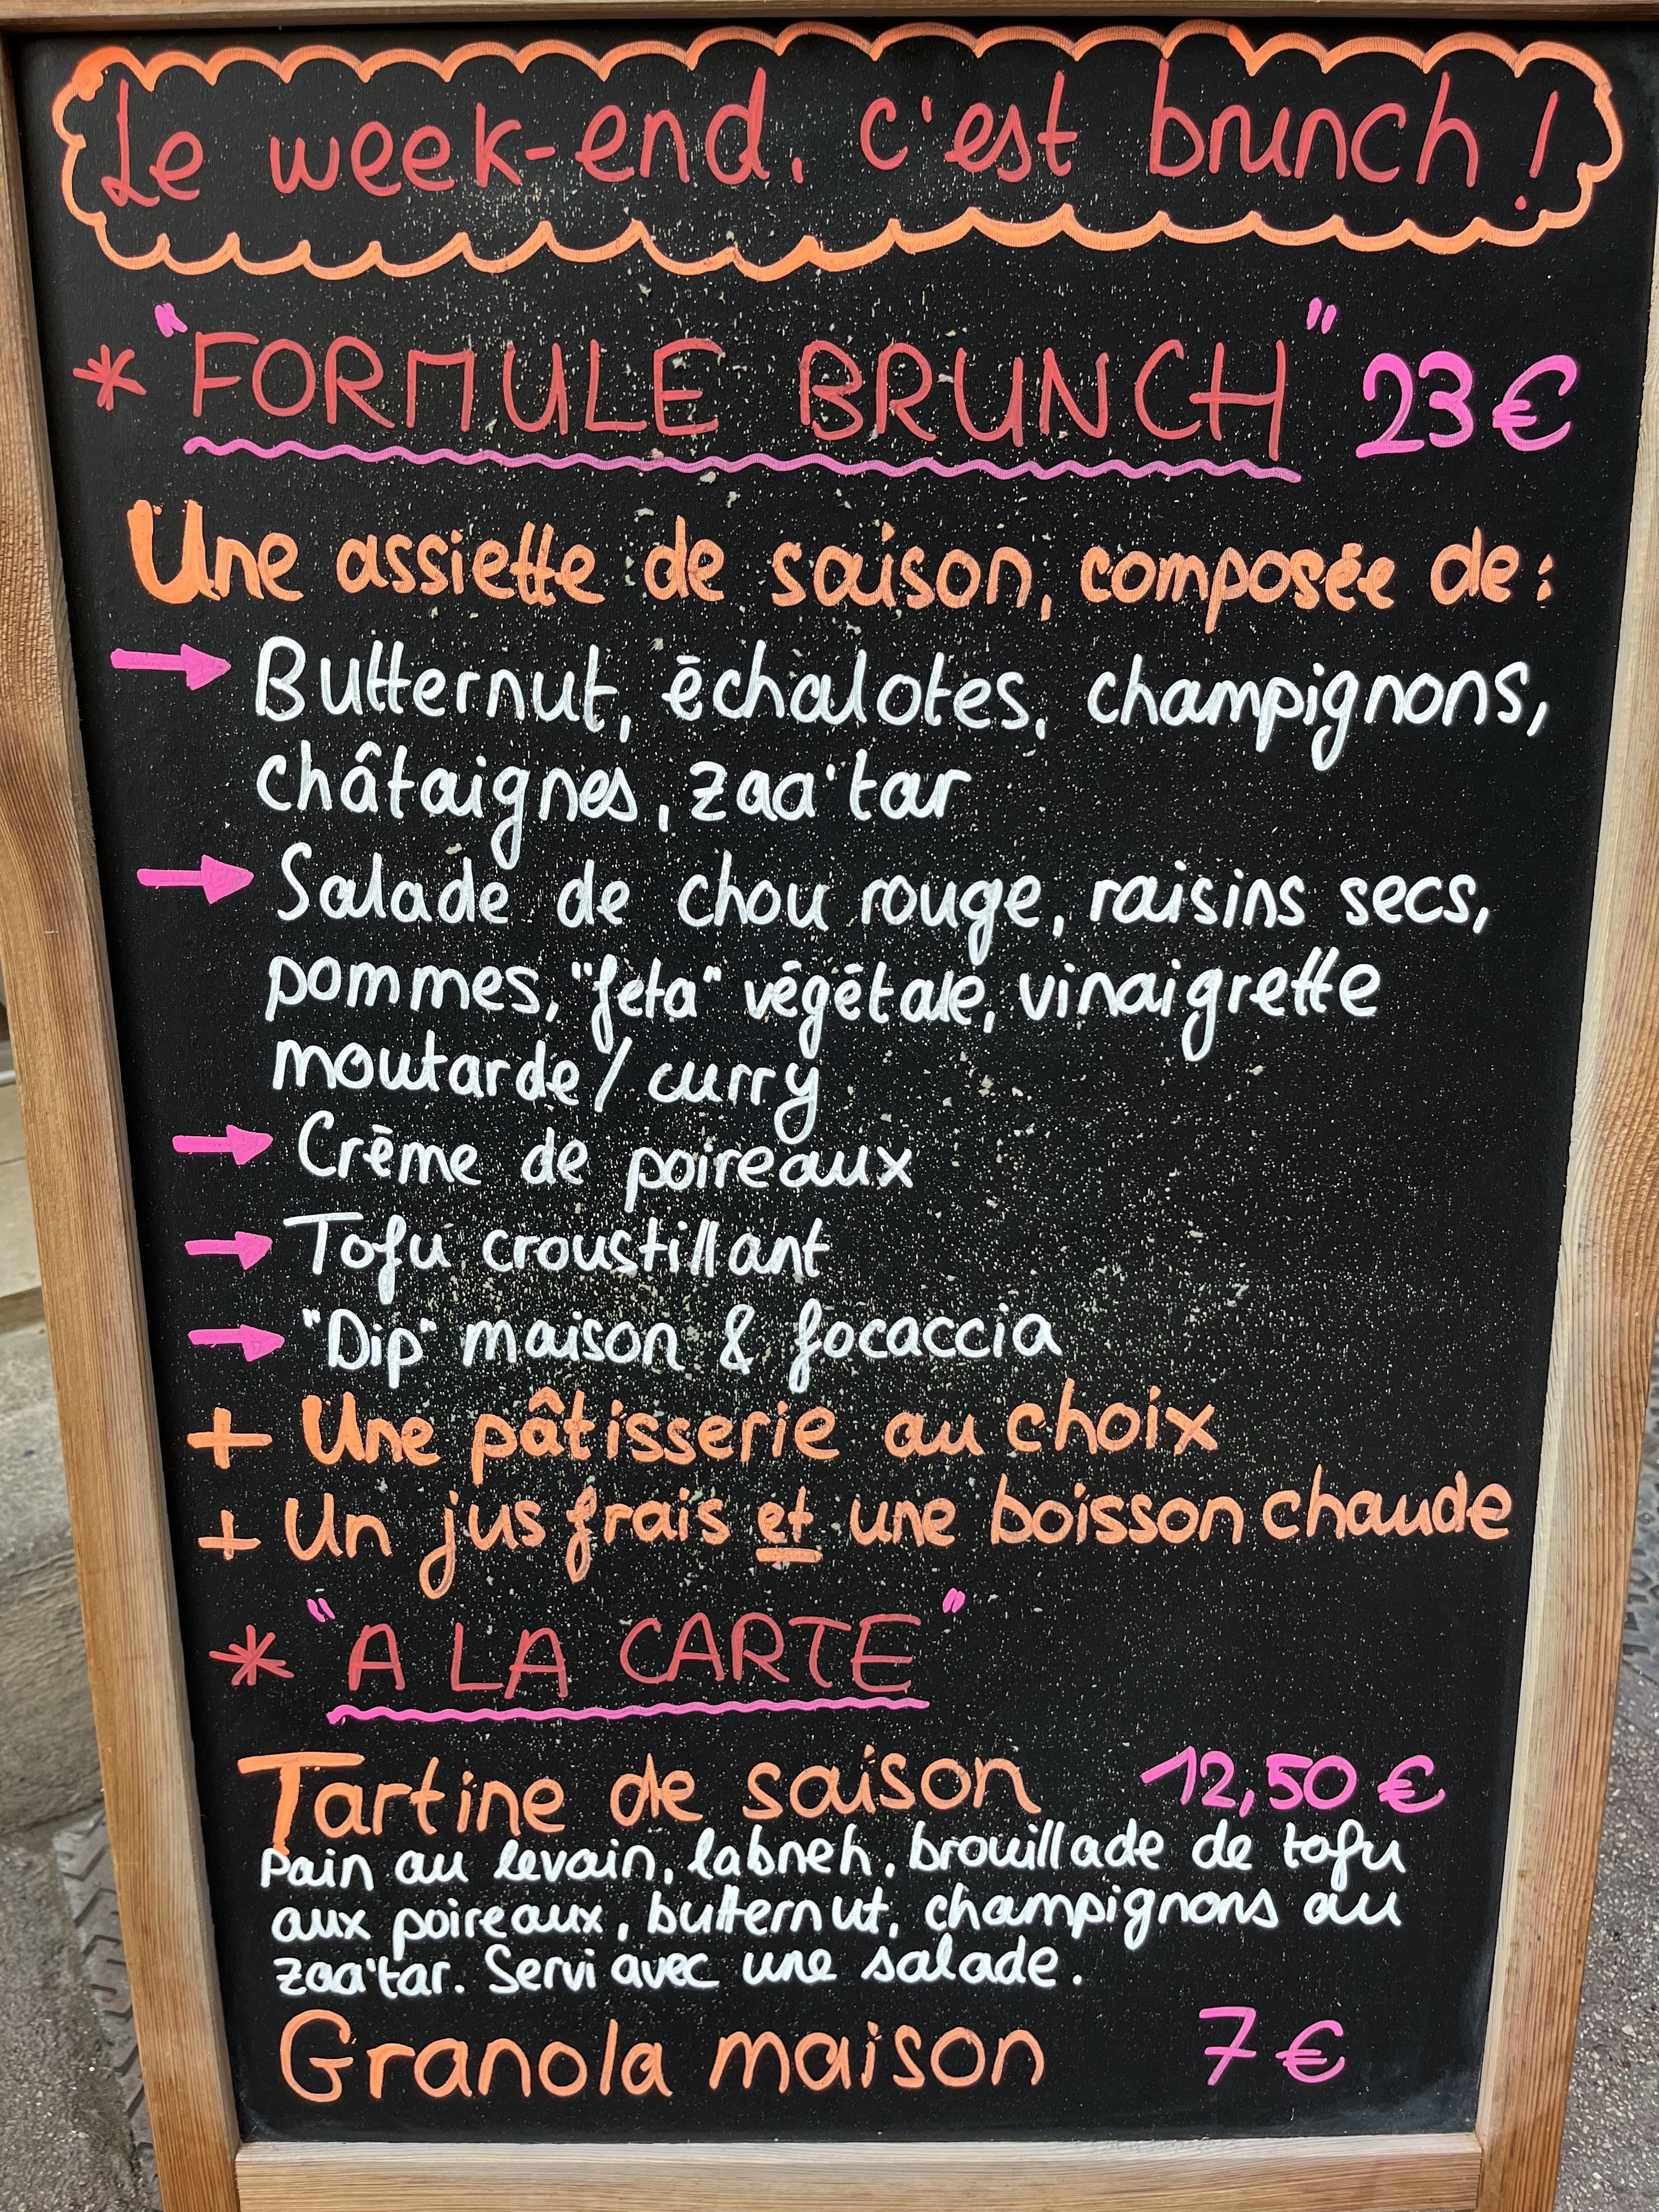 Le week-end, c'est brunch !
* "FORMULE BRUNCH" 23€
Une assiette de saison, composée de :
→ Butternut, échalotes, champignons,
châtaignes, zaa'tar
→ Salade de chou rouge, raisins secs,
pommes, "feta" végétale, vinaigrette
moutarde / curry
→ Crème de poireaux
→ Tofu croustillant
→ "Dip" maison & focaccia
+ Une pâtisserie au choix
+ Un jus frais et une boisson chaude
* "A LA CARTE"
Tartine de saison 12,50 €
Pain au levain, labneh, brouillade de tofu
aux poireaux, butternut, champignons au
zaa'tar. Servi avec une salade.
Granola maison 7 €